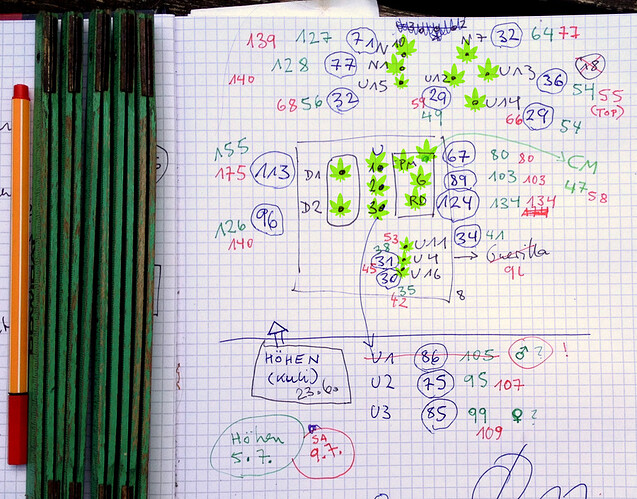 139 127 71 N10 N7 32 64 77
140 128 77 N1 U13 18
U15 U12 36 54 55
68 56 32 59 29 U14 (TOP)
49 66 29 54
155 U 67 80 80 CM
175 113 D1 1 PM 89 103 103 47 58
2 G
126 96 D2 3 RD 124 134 134
140
53 U11 34 41
38
31 U4 → Guerilla
45 91
30 U16
35
42 8
HÖHEN U1 86 105 ♂? !
(Kuli) U2 75 95 107
23.6.
U3 85 99 ♀?
109
Höhen SA
5.7. 9.7.